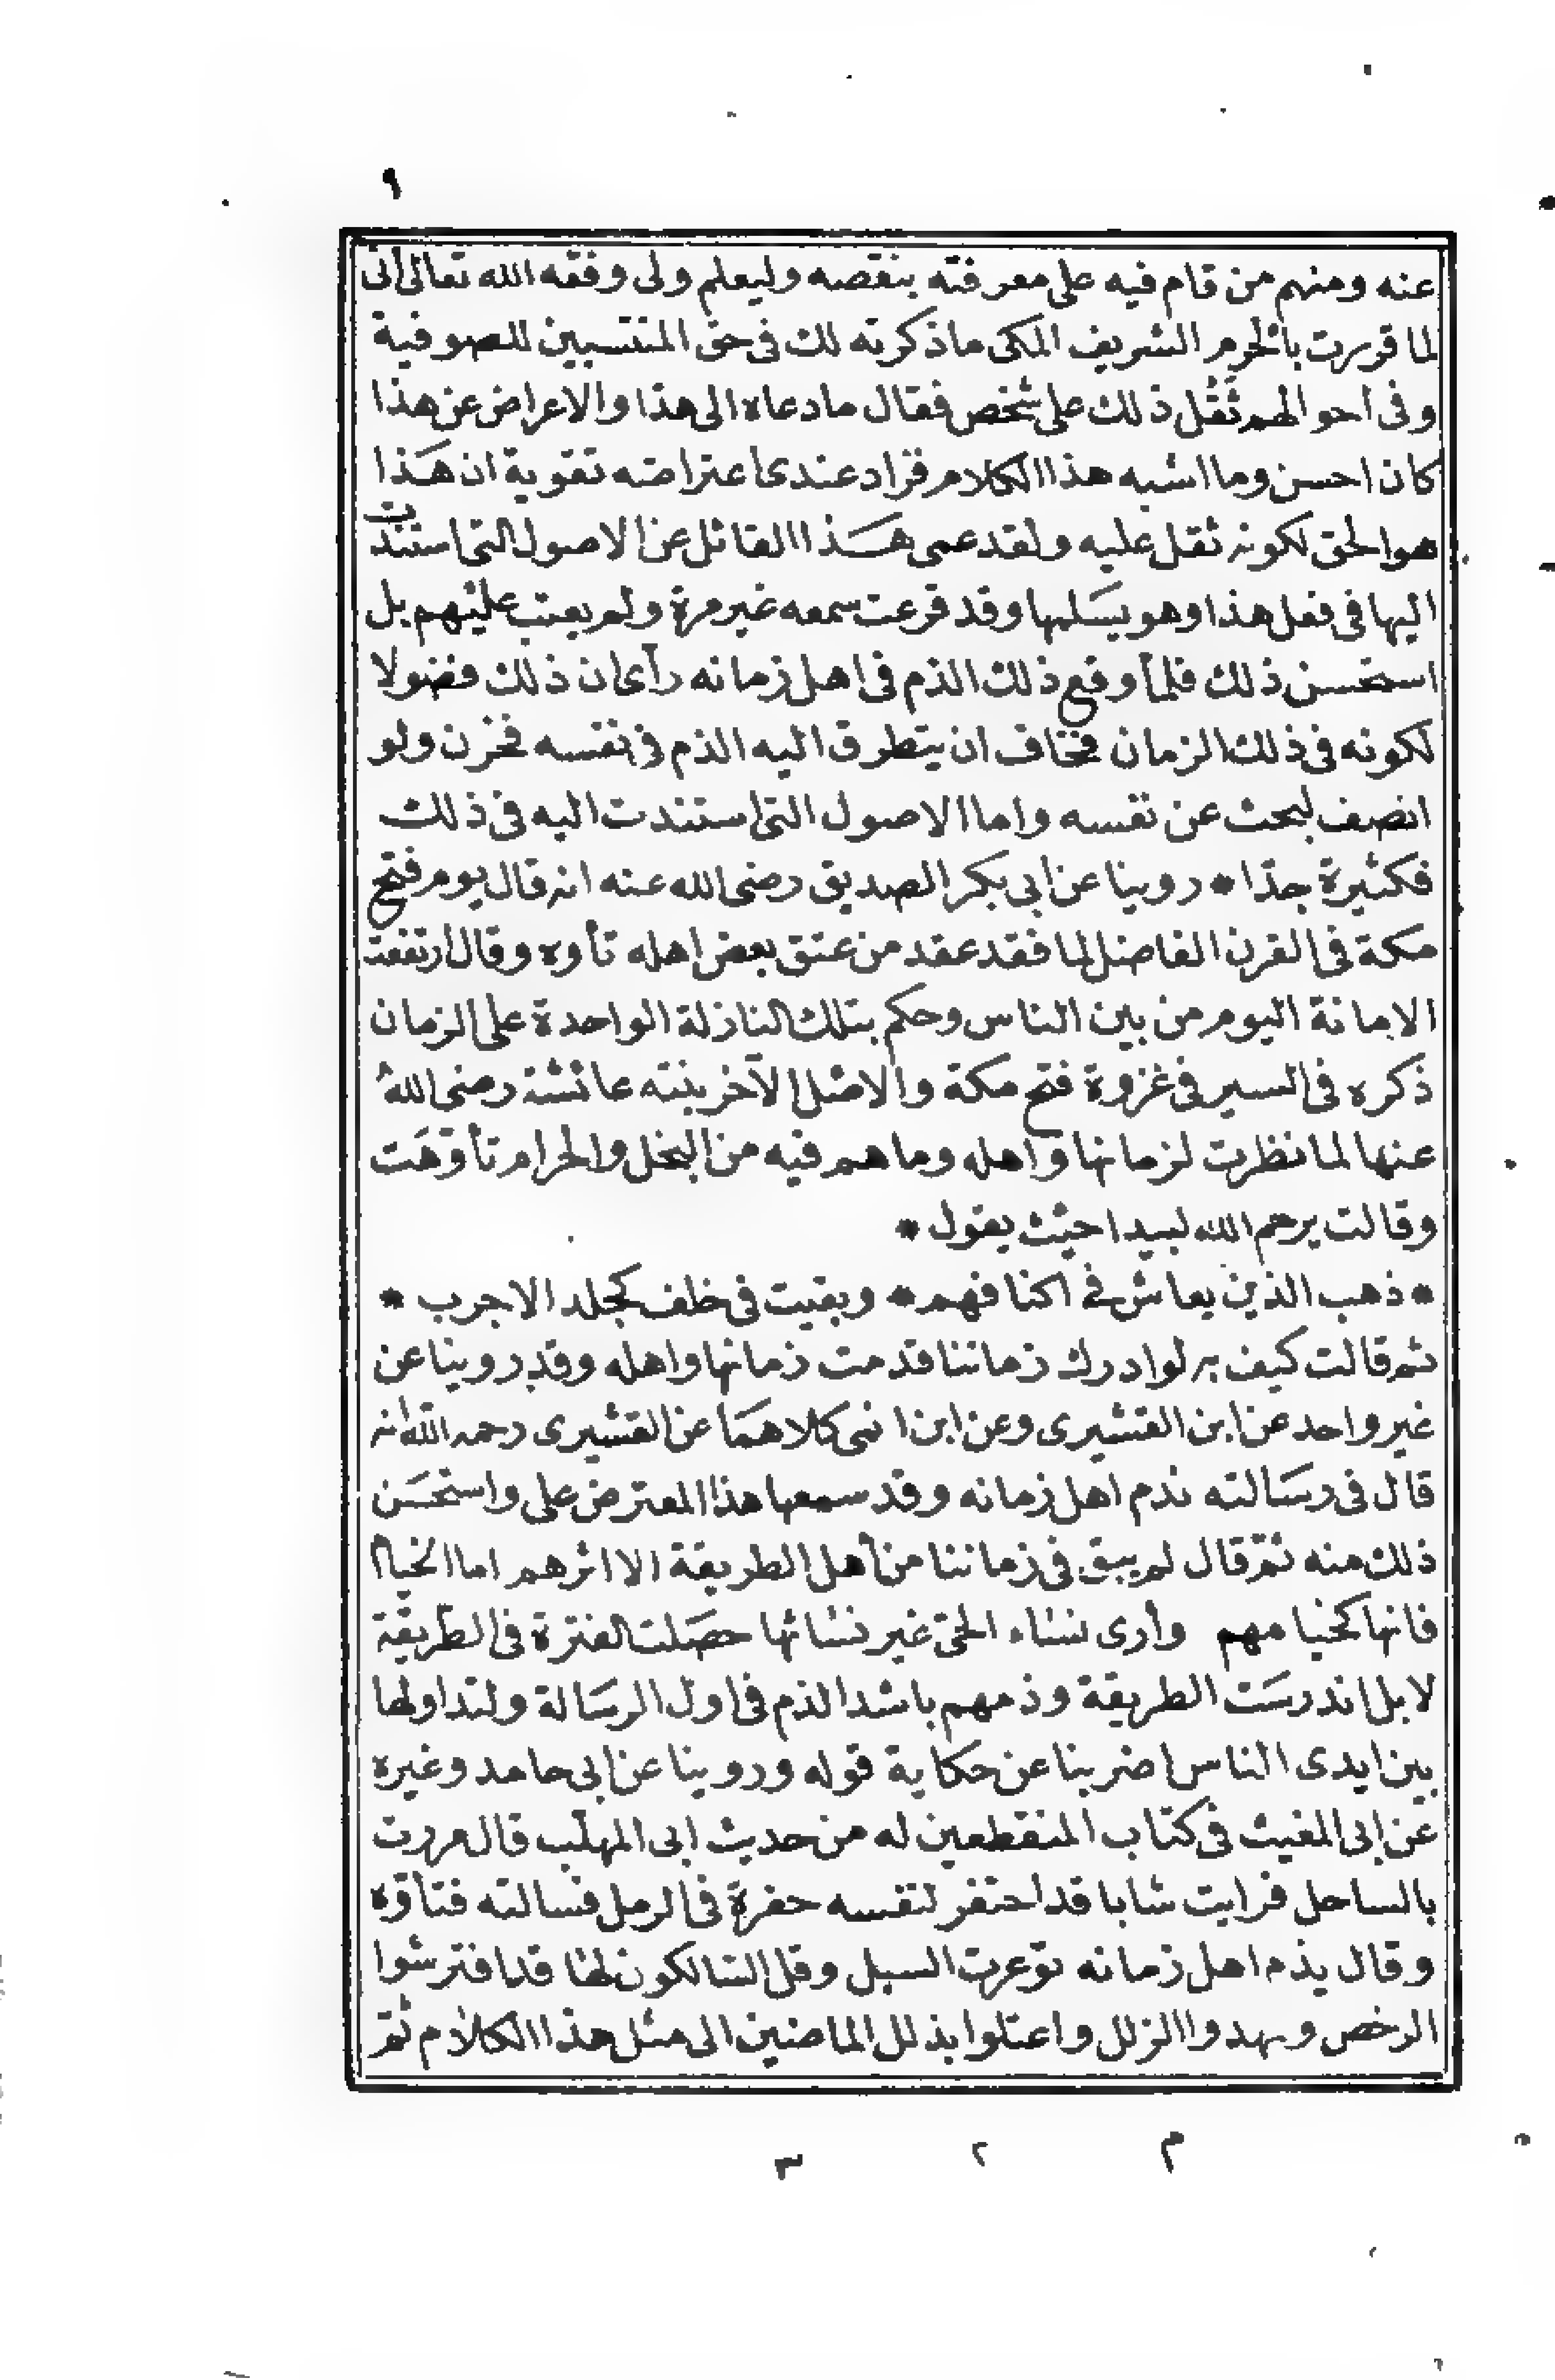 ٩
عنه ومنهم من قام فيه على معرفته بنقصه وليعلم ولى وفقه الله تعالى أنى
لما قررت بالحرم الشريف المكى ماذكرته لك فى حق المنتسبين للصوفية
وفى احوالهم ثقل ذلك على شخص فقال مادعاه الى هذا والاعراض عن هذا
كان احسن وما اشبه هذا الكلام فزاد عندى اعتراضه تقوية ان هذا
هو الحق لكونه ثقل عليه ولقد عمى هذا القائل عن الاصول التى استندت
اليها فى فعل هذا وهو يسلمها وقد قرعت سمعه غير مرة ولم يعتب عليهم بل
استحسن ذلك فلما وقع ذلك الذم فى اهل زمانه رأى ان ذلك فضولا
لكونه فى ذلك الزمان فخاف ان يتطرق اليه الذم فى نفسه فحزن ولو
انصف لبحث عن نفسه واما الاصول التى استندت اليه فى ذلك
فكثيرة جدّا * روينا عن ابى بكر الصديق رضى الله عنه انه قال يوم فتح
مكة فى القرن الفاضل لما فقد عقد من عنق بعض اهله تأوه وقال ارتفعت
الامانة اليوم من بين الناس وحكم بتلك النازلة الواحدة على الزمان
ذكره فى السير فى غزوة فتح مكة والاصل الآخر بنته عائشة رضى الله
عنها لما نظرت لزمانها واهله وما هم فيه من البخل والحرام تأوّهت
وقالت يرحم الله لبيدا حيث يقول *
* ذهب الذين يعاش فى اكنافهم * وبقيت فى خلف كجلد الاجرب *
ثم قالت كيف به لو ادرك زماننا قدمت زمانها واهله وقد روينا عن
غير واحد عن ابن القشيرى وعن ابن انى كلاهما عن القشيرى رحمه الله انه
قال فى رسالته ندم اهل زمانه وقد سمعها هذا المعترض على واستحسن
ذلك منه ثم قال لم يبق فى زماننا من أهل الطريقة الا اثرهم اما الخيام
فانها كخيامهم وأرى نساء الحىّ غير نسائها حصلت الفترة فى الطريقة
لا بل اندرست الطريقة وذمهم باشد الذم فى اول الرسالة ولتداولها
بين ايدى الناس اضربنا عن حكاية قوله وروينا عن ابى حامد وغيره
عن ابى المغيث فى كتاب المنقطعين له من حديث ابى المهلب قال مررت
بالساحل فرايت شابا قد احتفر لنفسه حفرة فى الرمل فسالته فتأوّه
وقال يذم اهل زمانه توعرت السبل وقل السالكون لها قد افترشوا
الرخص ومهدوا الزلل واعتلوا بذلل الماضين الى مثل هذا الكلام ثم
م ٢ ٣